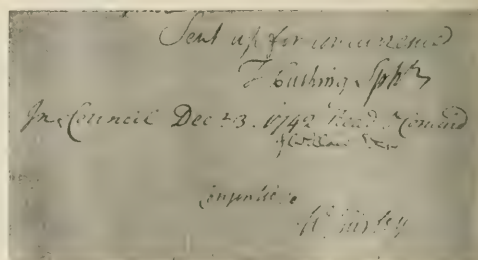 Sent up for concurrence
T Cushing Spkr
In Council Dec 23. 1742 Read & Concurd
J Willard Secr
Consented to
W Shirley